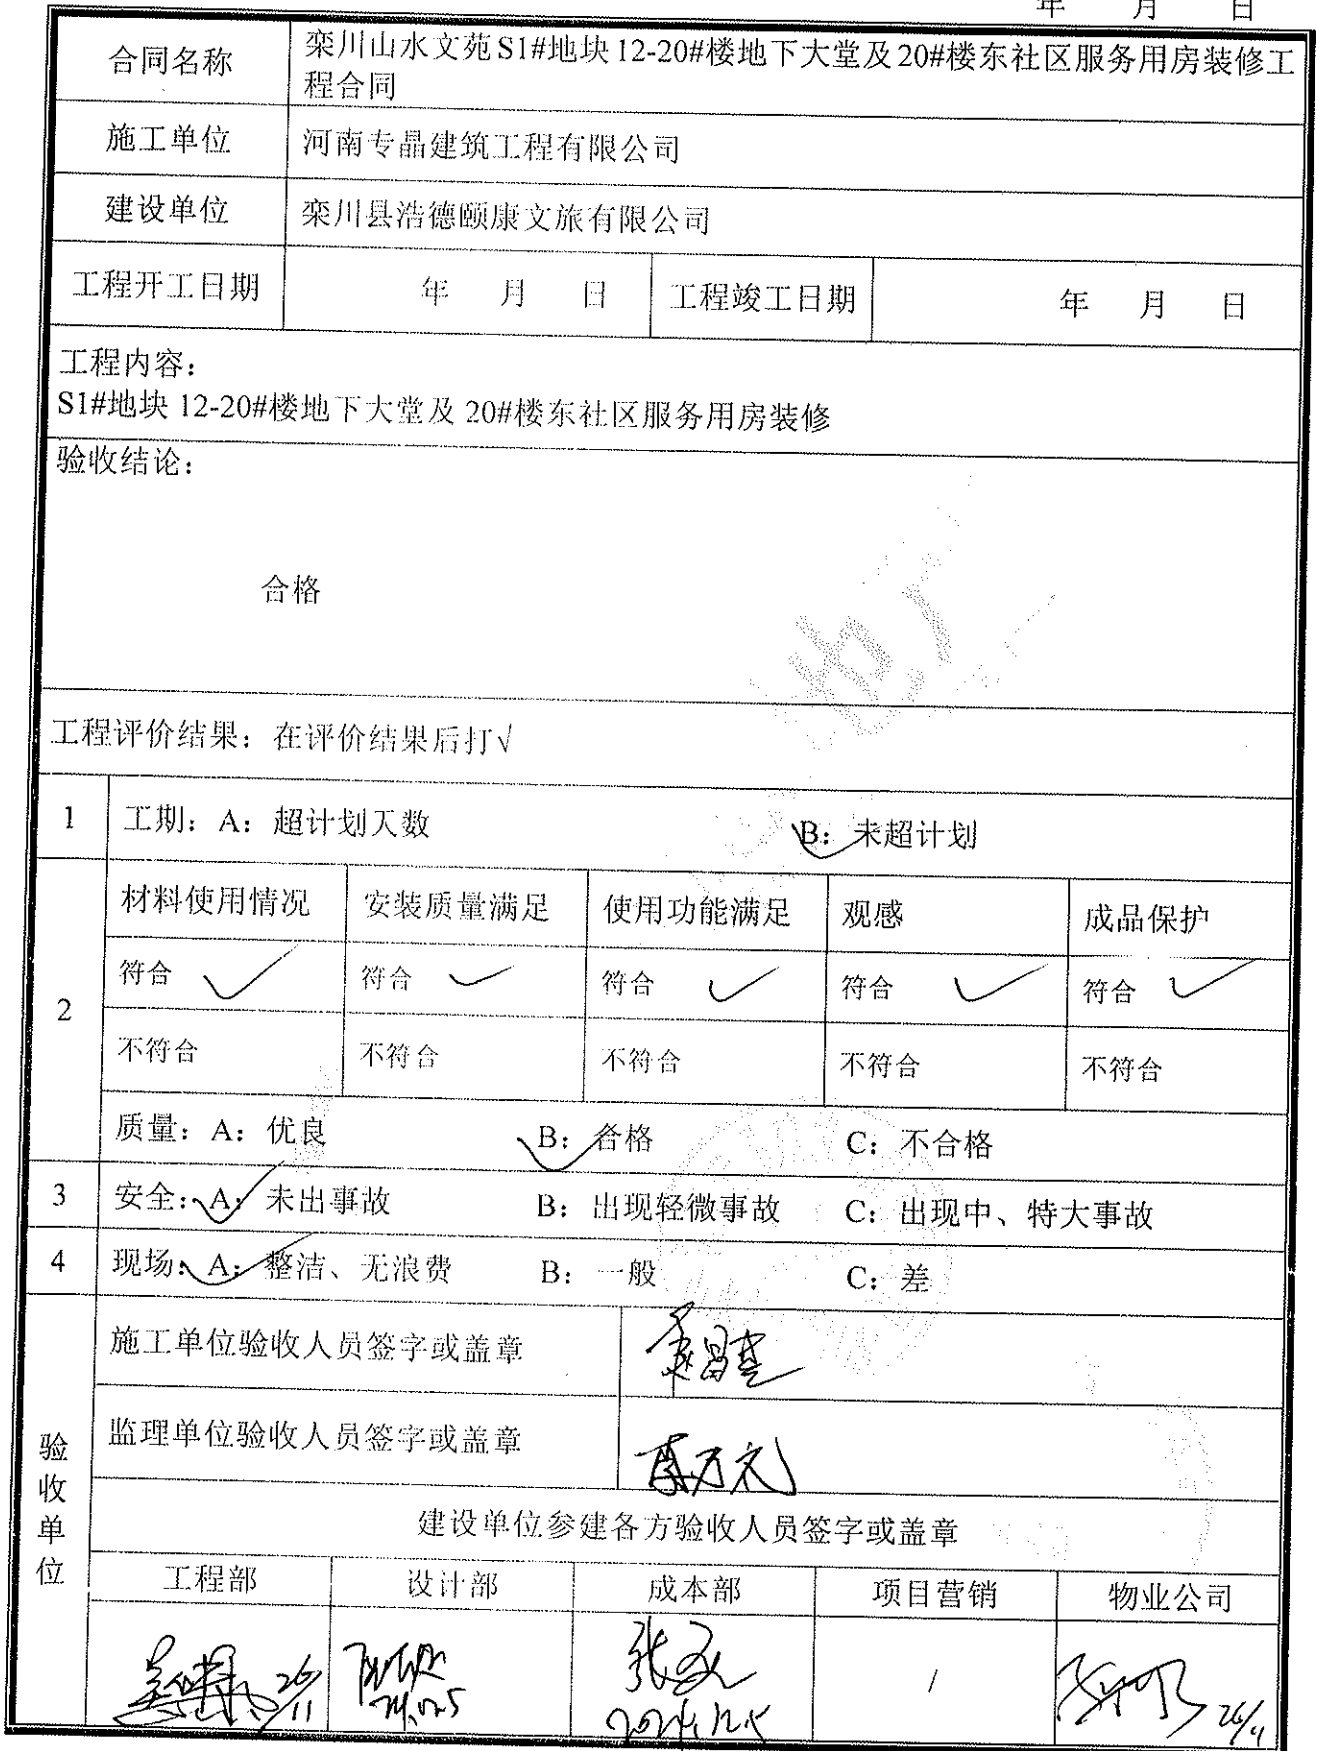 年 月 日
合同名称 栾川山水文苑S1#地块12-20#楼地下大堂及20#楼东社区服务用房装修工
程合同
施工单位 河南专晶建筑工程有限公司
建设单位 栾川县浩德颐康文旅有限公司
工程开工日期 年 月 日 工程竣工日期 年 月 日
工程内容：
S1#地块 12-20#楼地下大堂及 20#楼东社区服务用房装修
验收结论：
合格
工程评价结果：在评价结果后打√
1 工期：A：超计划天数 B：未超计划
2 材料使用情况 安装质量满足 使用功能满足 观感 成品保护
符合 ✓ 符合 ✓ 符合 ✓ 符合 ✓ 符合 ✓
不符合 不符合 不符合 不符合 不符合
质量：A：优良 B：合格 C：不合格
3 安全：A：未出事故 B：出现轻微事故 C：出现中、特大事故
4 现场：A：整洁、无浪费 B：一般 C：差
验收单位
施工单位验收人员签字或盖章
监理单位验收人员签字或盖章
建设单位参建各方验收人员签字或盖章
工程部 设计部 成本部 项目营销 物业公司
26/11 / 26/11
2024.12.5